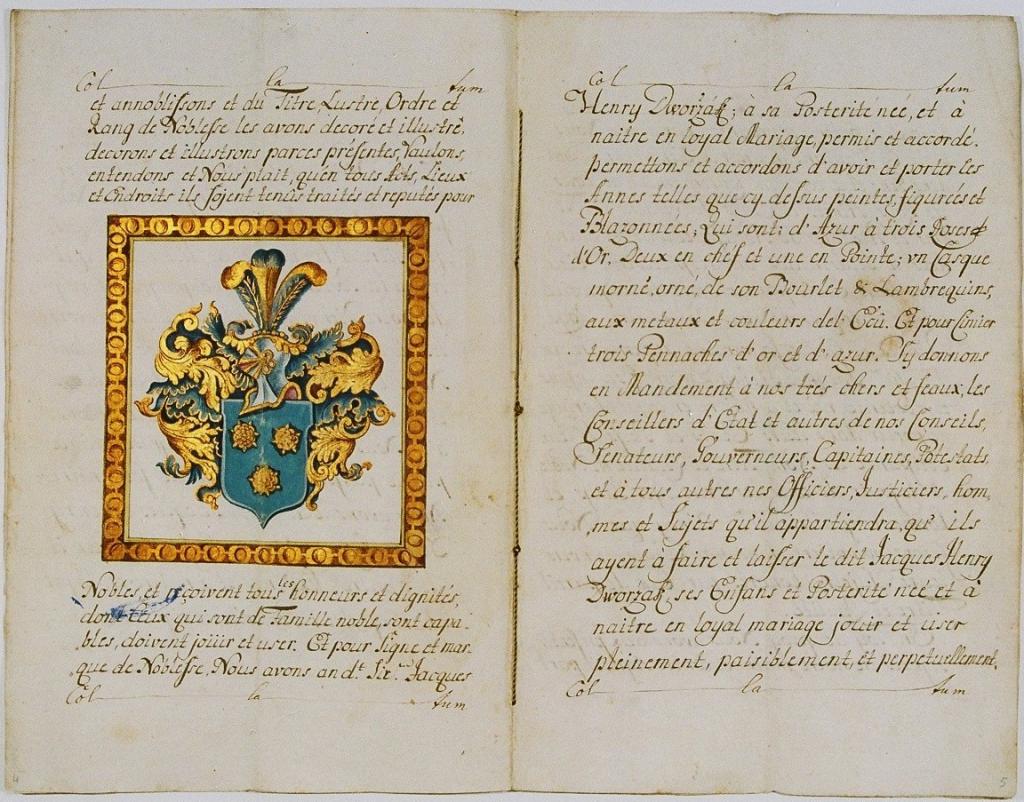 Col la tum
et annoblissons et du Titre, Lustre, Ordre et
Rang de Noblesse les avons decoré et illustré,
decorons et illustrons parces présentes, Vaulons,
entendons et Nous plait, qu'en tous Lieux
et Endroits ils sojent tenûs traités et reputés pour
Nobles, et reçoivent tous les honneurs et dignités,
dont Ceux qui sont de Famille noble, sont capa-
bles, doivent joüir et user. Et pour signe et mar-
que de Noblesse, Nous avons an d.t Jacques
Col la tum
4
Col la tum
Henry Dworžák; à sa Posterité née, et à
naitre en loyal Mariage, permis et accordé.
permettons et accordons d'avoir et porter les
Armes telles que cy-dessus peintes, figurées et
Blazonnées; Qui sont; d'Azur à trois Roses
d'Or. Deux en chéf et une en Pointe; vn Casque
morné, orné, de son Bourlet & Lambrequins,
aux metaux et couleurs del' Ecû. Et pour Cimier
trois Pennaches d'or et d'azur. Sy donnons
en Mandement à nos trés chers et feaux, les
Conseillers d'Etat et autres de nos Conseils,
Senateurs, Gouverneurs, Capitaines, Potestats,
et à tous autres nes Officiers, Justiciers, hom,
mes et Sujets qu'il appartiendra, qu' ils
ayent à faire et laisser le dit Jacques Henry
Dworžak, ses Enfans et Posterité née et à
naitre en loyal mariage jouir et user
pleinement, paisiblement, et perpetuellement,
Col la tum
5